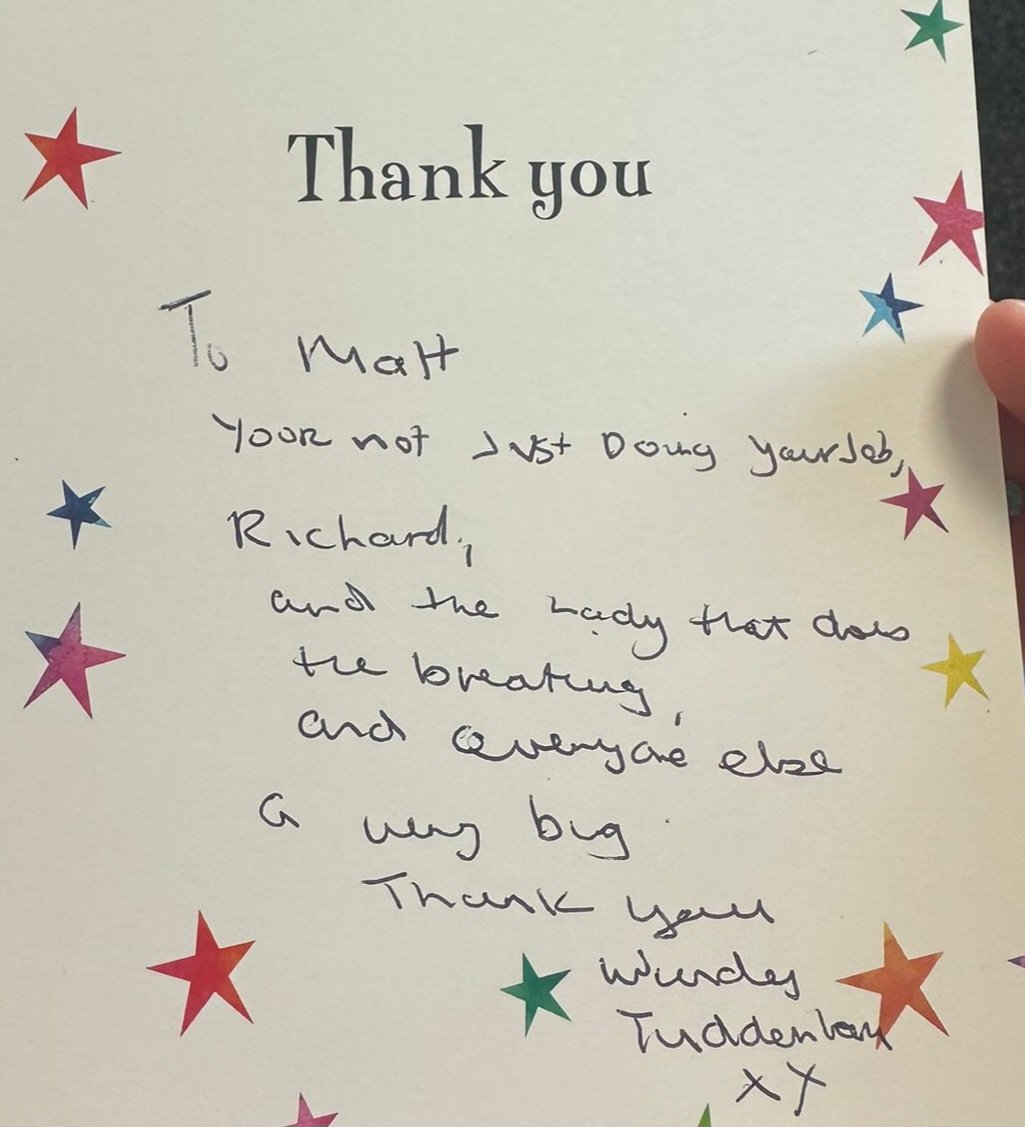 Thank you
To Matt
Your not Just Doing your Job,
Richard,
and the Lady that does
the breating,
and everyone else
a very big
Thank you
Tuddenham
xx